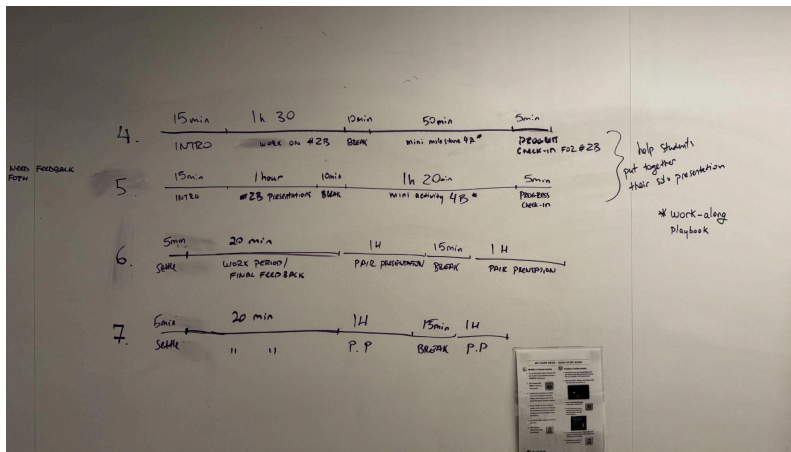 15min 1h 30 10min 50min 5min
4. INTRO WORK ON #2B BREAK mini milestone 4A* PROGRESS
CHECK-IN FOR #2B
NEED FEEDBACK
FORM
15min 1 hour 10min 1h 20min 5min
5. INTRO #2B PRESENTATIONS BREAK mini activity 4B* PROGRESS
CHECK-IN
help students
put together
their solo presentation
* work-along
Playbook
5min 20 min 1H 15min 1H
6. Settle WORK PERIOD/ PAIR PRESENTATION BREAK PAIR PRENTATION
FINAL FEEDBACK
5min 20 min 1H 15min 1H
7. Settle " " P.P BREAK P.P